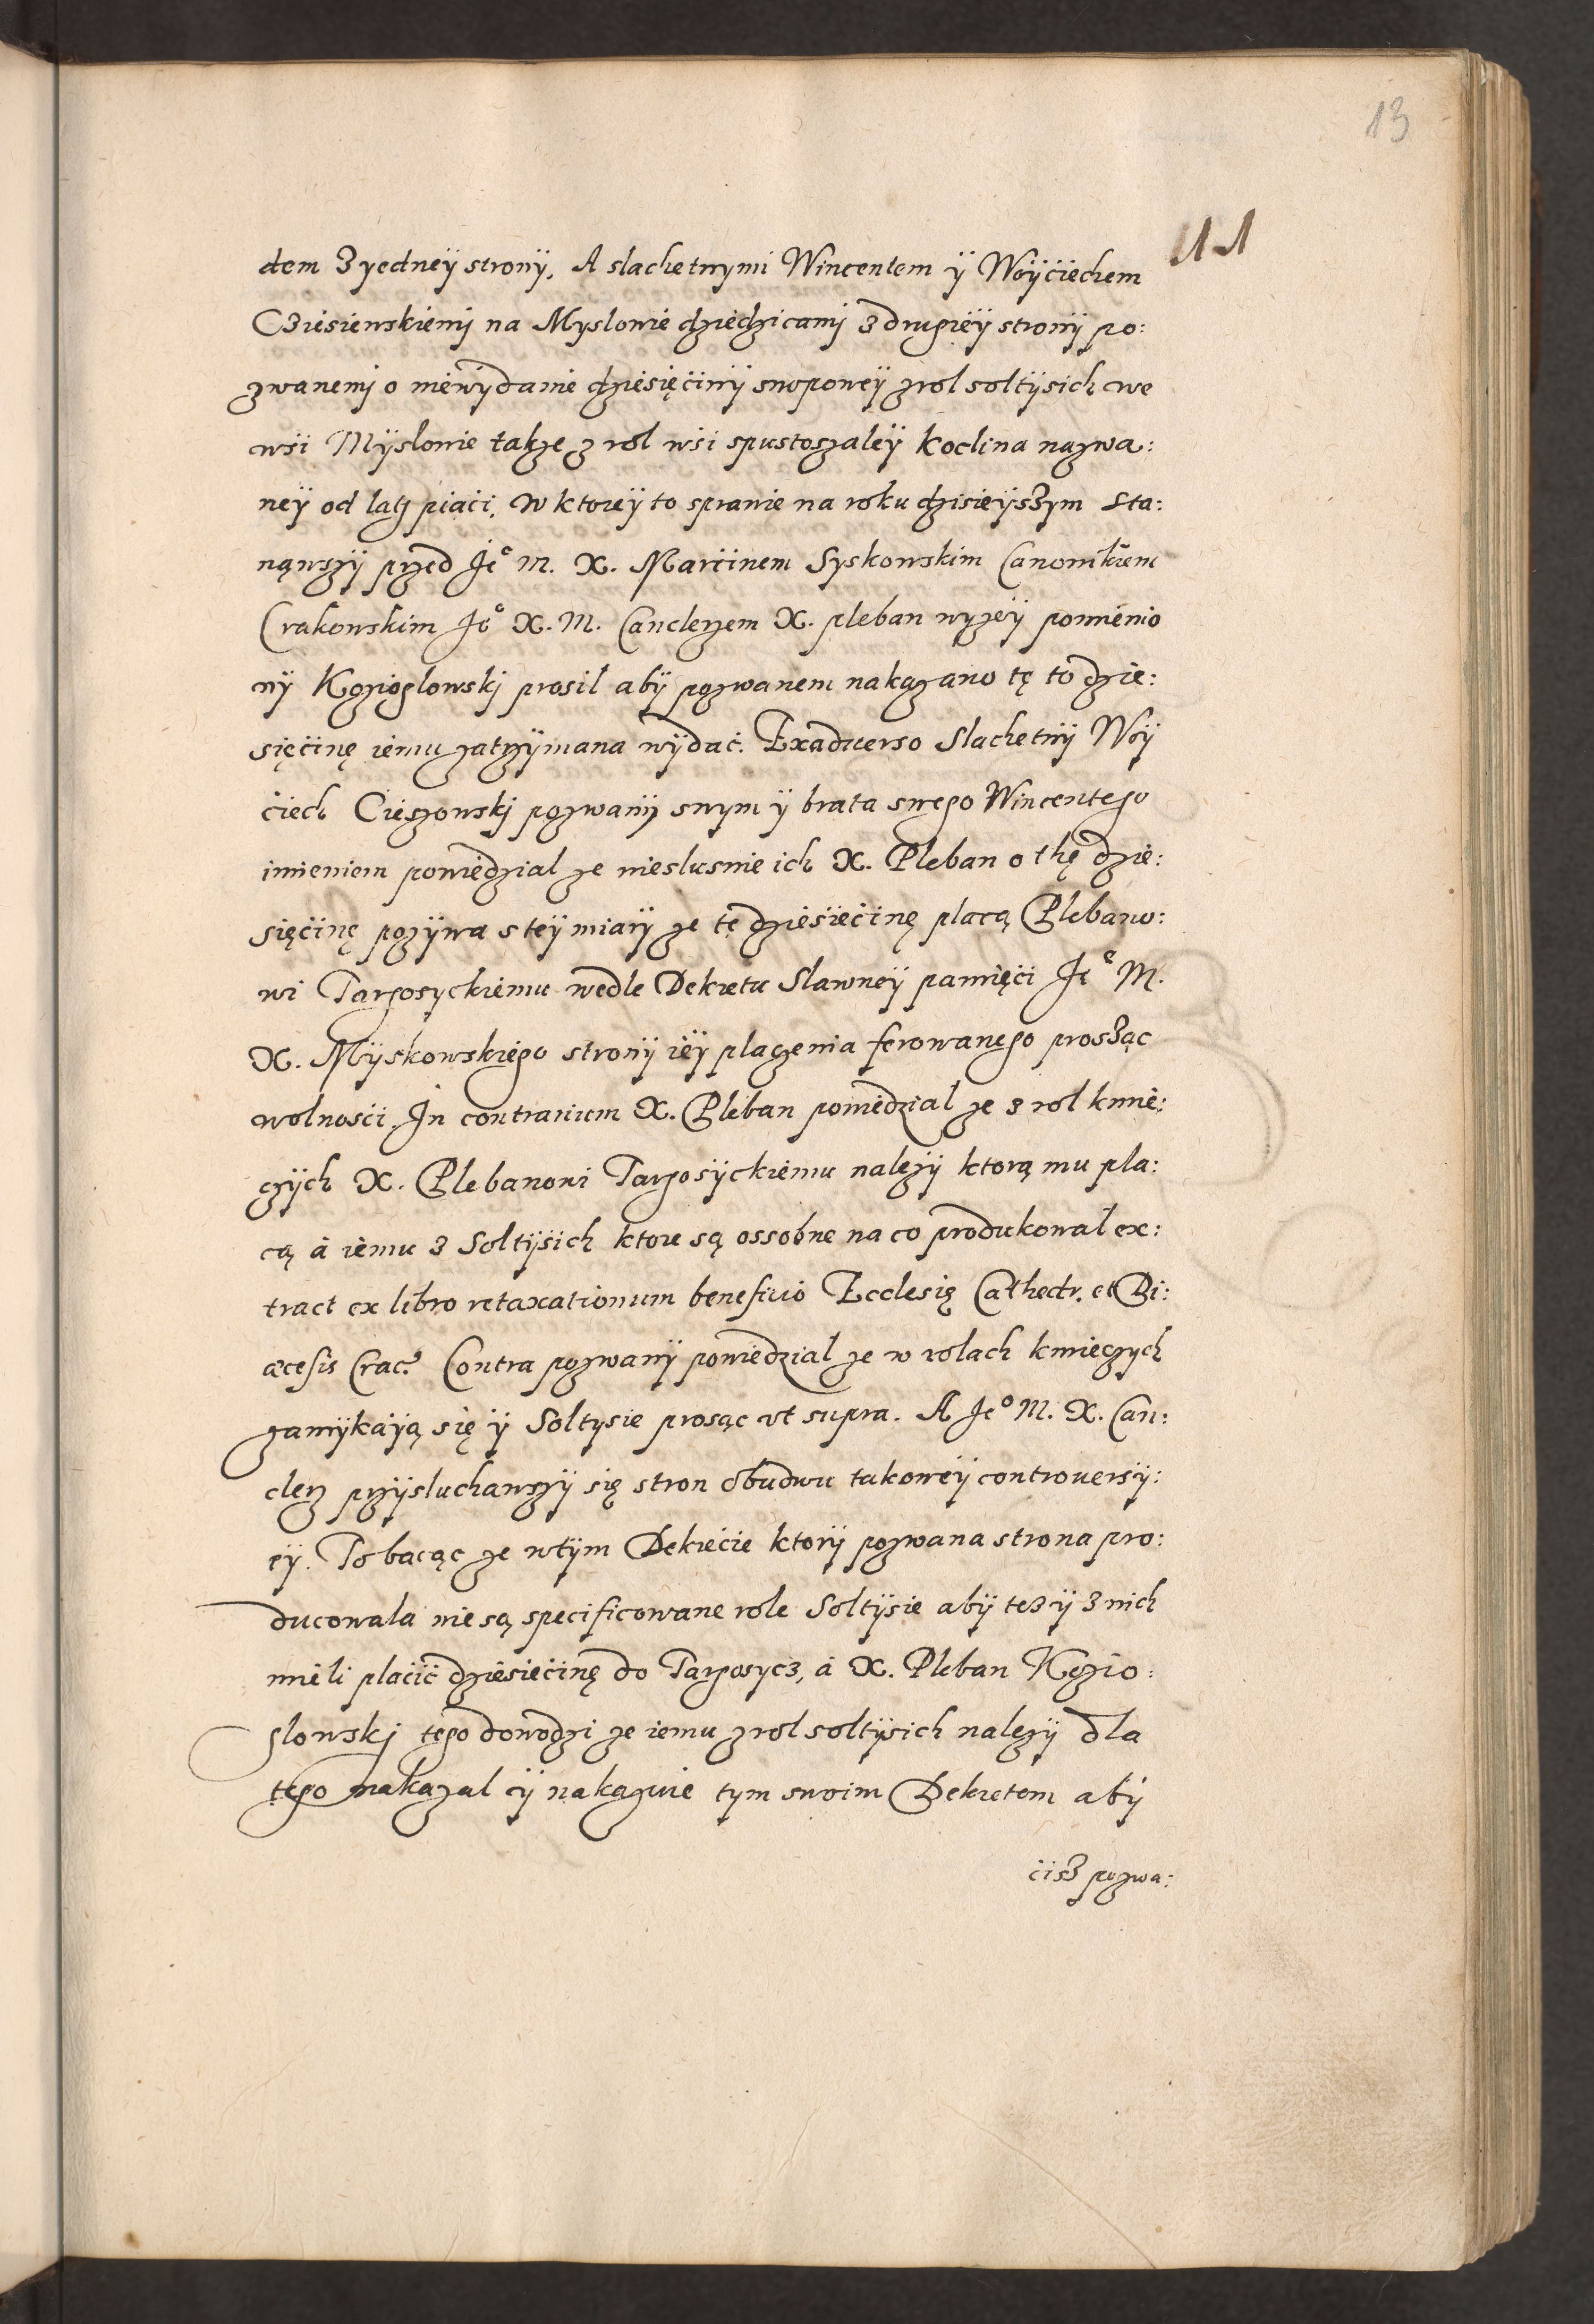 13
11
dem z yedneÿ stronÿ. A slachetnymi Wincentem ÿ Woÿciechem
Cziesienskiemj na Myslowie dziedzicamj z drugieÿ stronÿ po:
zwanemj o niewÿdanie dziesięcinÿ snopoweÿ z rol soltÿsich we
wsi Mÿslowie takze z rol wsi spustoszaleÿ Koclina nazwa:
neÿ od latz piaci. W ktoreÿ to sprawie na roku dzisieÿszym sta:
nąwszÿ przed Je° M. X. Marcinem Syskowskim Canonikiem
Crakowskim Je° X. M. Canclerzem X. pleban wyzeÿ pomienio
nÿ Kozioglowskj prosil abÿ pozwanem nakazano tę to dzie:
sięcinę iemu zatrzÿmana wÿdać. Exaduerso Slachetnÿ Woÿ
ciech Cieszowskj pozwanÿ swym ÿ brata swego Wincentego
imieniem powiedzial ze nieslusnie ich X. Pleban o thę dzie:
sięcinę pozÿwa s teÿ miarÿ ze tę dziesiecinę placą Plebano:
wi Targosyckiemu wedle Dekretu Slawneÿ pamięci Je° M.
X. Mÿskowskiego stronÿ ieÿ placzenia ferowanego prosząc
wolnosci. In contrarium X. Pleban powiedzial ze z rol kmie:
czÿch X. Plebanowi Targosÿckiemu nalezÿ ktorą mu pla:
cą à iemu z Soltÿsich ktore są ossobne na co produkowal ex:
tract ex libro retaxationum beneficio Ecclesię Cathedr. et Di:
æcesis Crac. Contra pozwanÿ powiedzial ze w rolach kmieczych
zamÿkaÿą się ÿ Soltysie prosąc vt supra. A Je° M. X. Can:
clerz przÿsluchawszÿ się stron obudwu takoweÿ controuersÿ:
eÿ. To bacąc ze w tÿm Dekrecie ktorÿ pozwana strona pro:
ducowala nie są specificowane role Soltÿsie abÿ tez ÿ z nich
mieli placic dziesiecinę do Targosycz, à X. Pleban Kozio:
glowskj tego dowodzi ze iemu z rol soltÿsich nalezÿ dla
tego nakazal ÿ nakazuie tym swoim Dekretem abÿ
cisz pozwa: